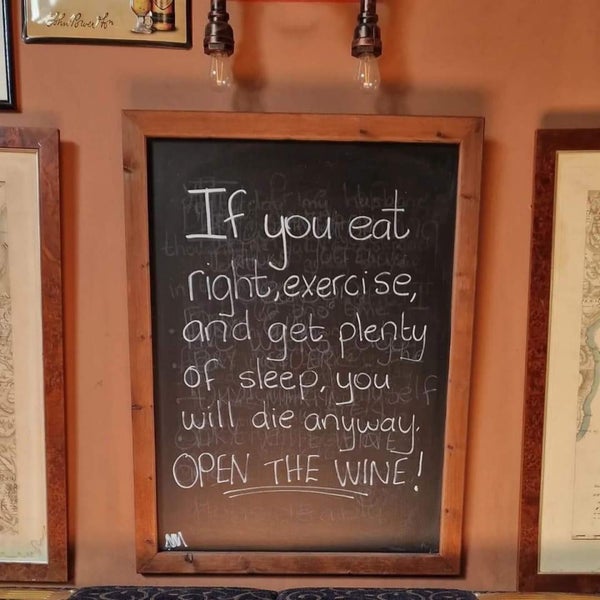 John Power & Son
If you eat
right, exercise,
and get plenty
of sleep, you
will die anyway.
OPEN THE WINE!